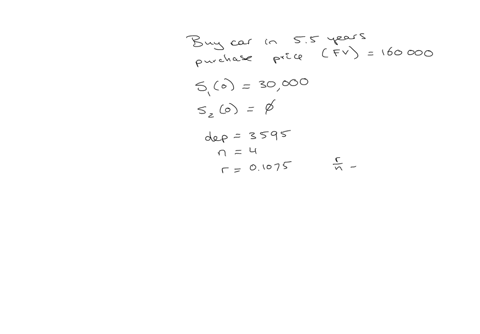 Buy car in 5.5 years
purchase price (FV) = 160 000
S₁(0) = 30,000
S₂(0) = ∅
dep = 3595
n = 4
r = 0.1075 r/n =